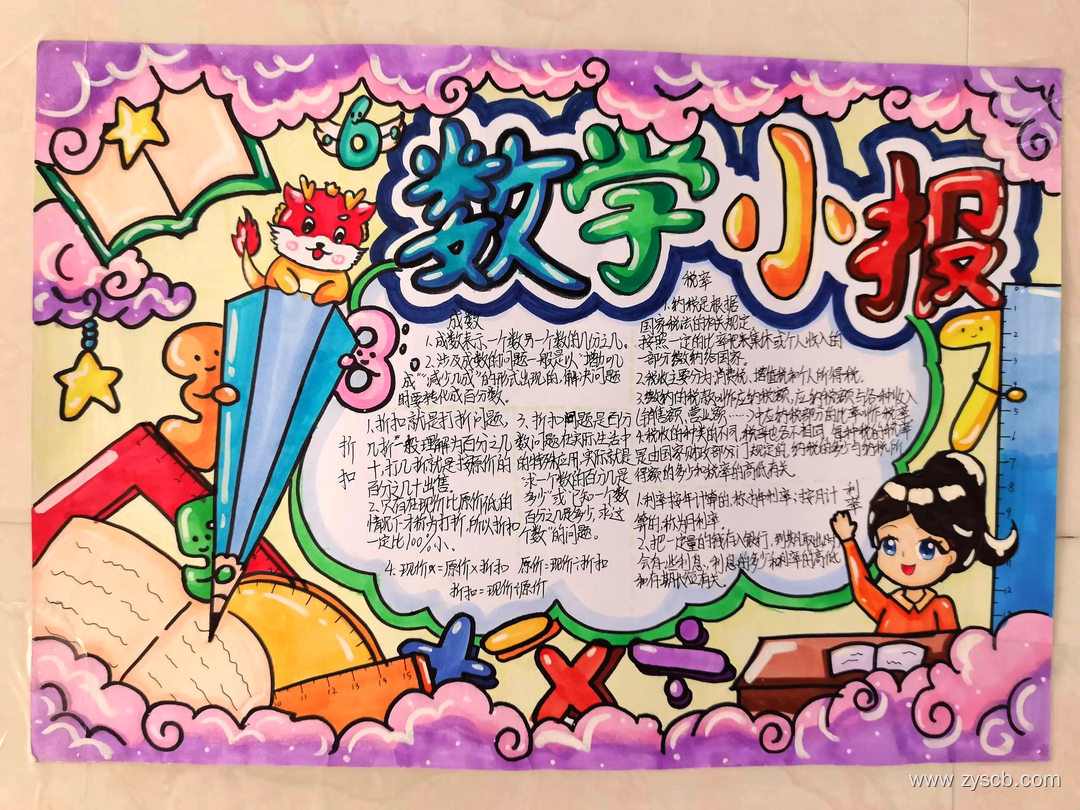 数学小报
成数
1.成数表示一个数另一个数的几分之几。
2.涉及成数的问题一般是以“增加几
成”“减少几成”的形式出现的,解决问题
时要转化成百分数。
折扣
1.折扣就是打折问题,
几折一般理解为百分之几
十,打几折就是按原价的
百分之几十出售。
2.只有在现价比原价低的
情况下才称为打折,所以折扣
一定比100%小。
3.折扣问题是百分
数问题在实际生活中
的特殊应用,实际就是
求一个数的百分几是
多少”或“已知一个数
百分之几是多少,求这
个数”的问题。
4.现价=原价×折扣 原价=现价÷折扣
折扣=现价÷原价
税率
1.纳税是根据
国家税法的有关规定
按照一定的比率把集体或个人收入的
一部分缴纳给国家。
2.税收主要分为消费税、增值税和个人所得税。
3.缴纳的税款叫做应纳税额,应纳税额与各种收入
(销售额、营业额……)中应纳税部分的比率叫作税率
4.税收的种类的不同,税率也各不相同,每种税的税率
是由国家财政部门规定的,纳税的多少与纳税所
得额的多少和税率的高低有关。
利率
1.利率按年计算的,称为年利率;按月计
算的,称为月利率
2.把一定量的钱存入银行,到期取出时
会有一些利息,利息的多少和利率的高低
和存期长短有关
6
8
7
10 11 12 13 14 15
www.zyscb.com